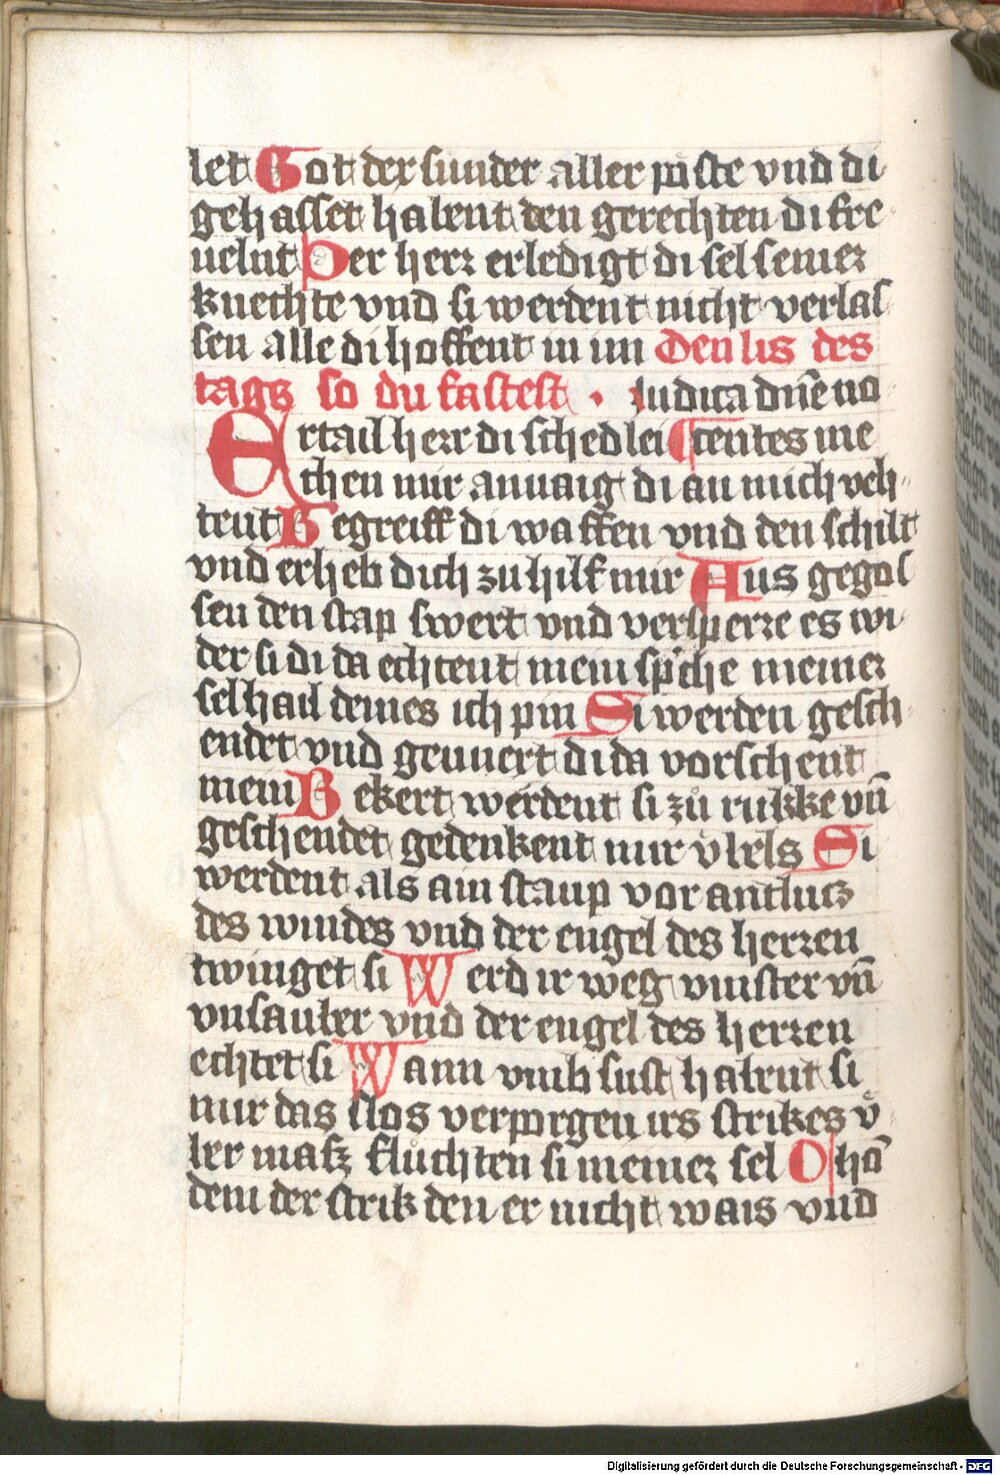 let Got der sunder aller pöste vnd di
gehasset habent den gerechten di fre
uelnt Der herr erledigt di sel seiner
knechte vnd si werdent nicht verlas
sen alle di hoffent in im Den lis des
tags so du fastest · Iudica dn̄e no
Ertail herr di schedlei ¶ centes me
chen mir anuaig di an mich veh-
tent Begreiff di waffen vnd den schilt
vnd erheb dich zu hilf mir Aus gegos
sen den stap swert vnd versperre es wi
der si di da echtent mein sp̄che meiner
sel hail deines ich pin Si werden gesch-
endet vnd geunert di da vorschent
mein Bekert werdent si zů rukke vn̄
geschendet gedenkent mir v̊bels Si
werdent als ain staup vor antlutz
des windes vnd der engel des herren
twinget si Werd ir weg vinster vn̄
vnsauber vnd der engel des herren
echtet si Wann vmb sust habent si
mir das slos verporgen irs strikes v̊
ber masz fluchten si meiner sel Chō
dem der strik den er nicht wais vnd
Digitalisierung gefördert durch die Deutsche Forschungsgemeinschaft - DFG